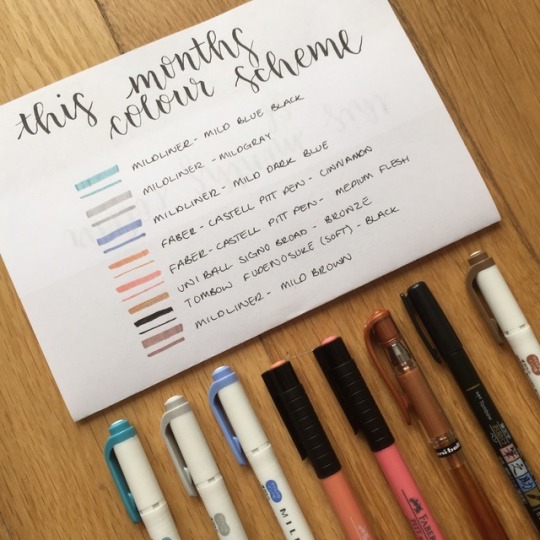 this months
colour scheme
MILDLINER - MILD BLUE BLACK
MILDLINER - MILDGRAY
MILDLINER - MILD DARK BLUE
FABER-CASTELL PITT PEN - CINNAMON
FABER-CASTELL PITT PEN - MEDIUM FLESH
UNI BALL SIGNO BROAD - BRONZE
TOMBOW FUDENOSUKE (SOFT) - BLACK
MILDLINER - MILD BROWN
MIL
FABER
uni-ball